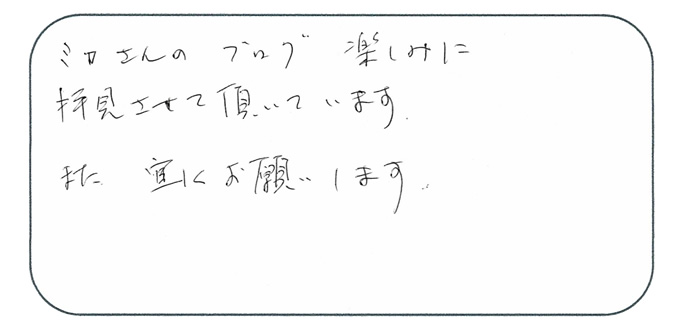 ミロさんの ブログ 楽しみに
拝見させて頂いています.
また 宜しくお願いします.